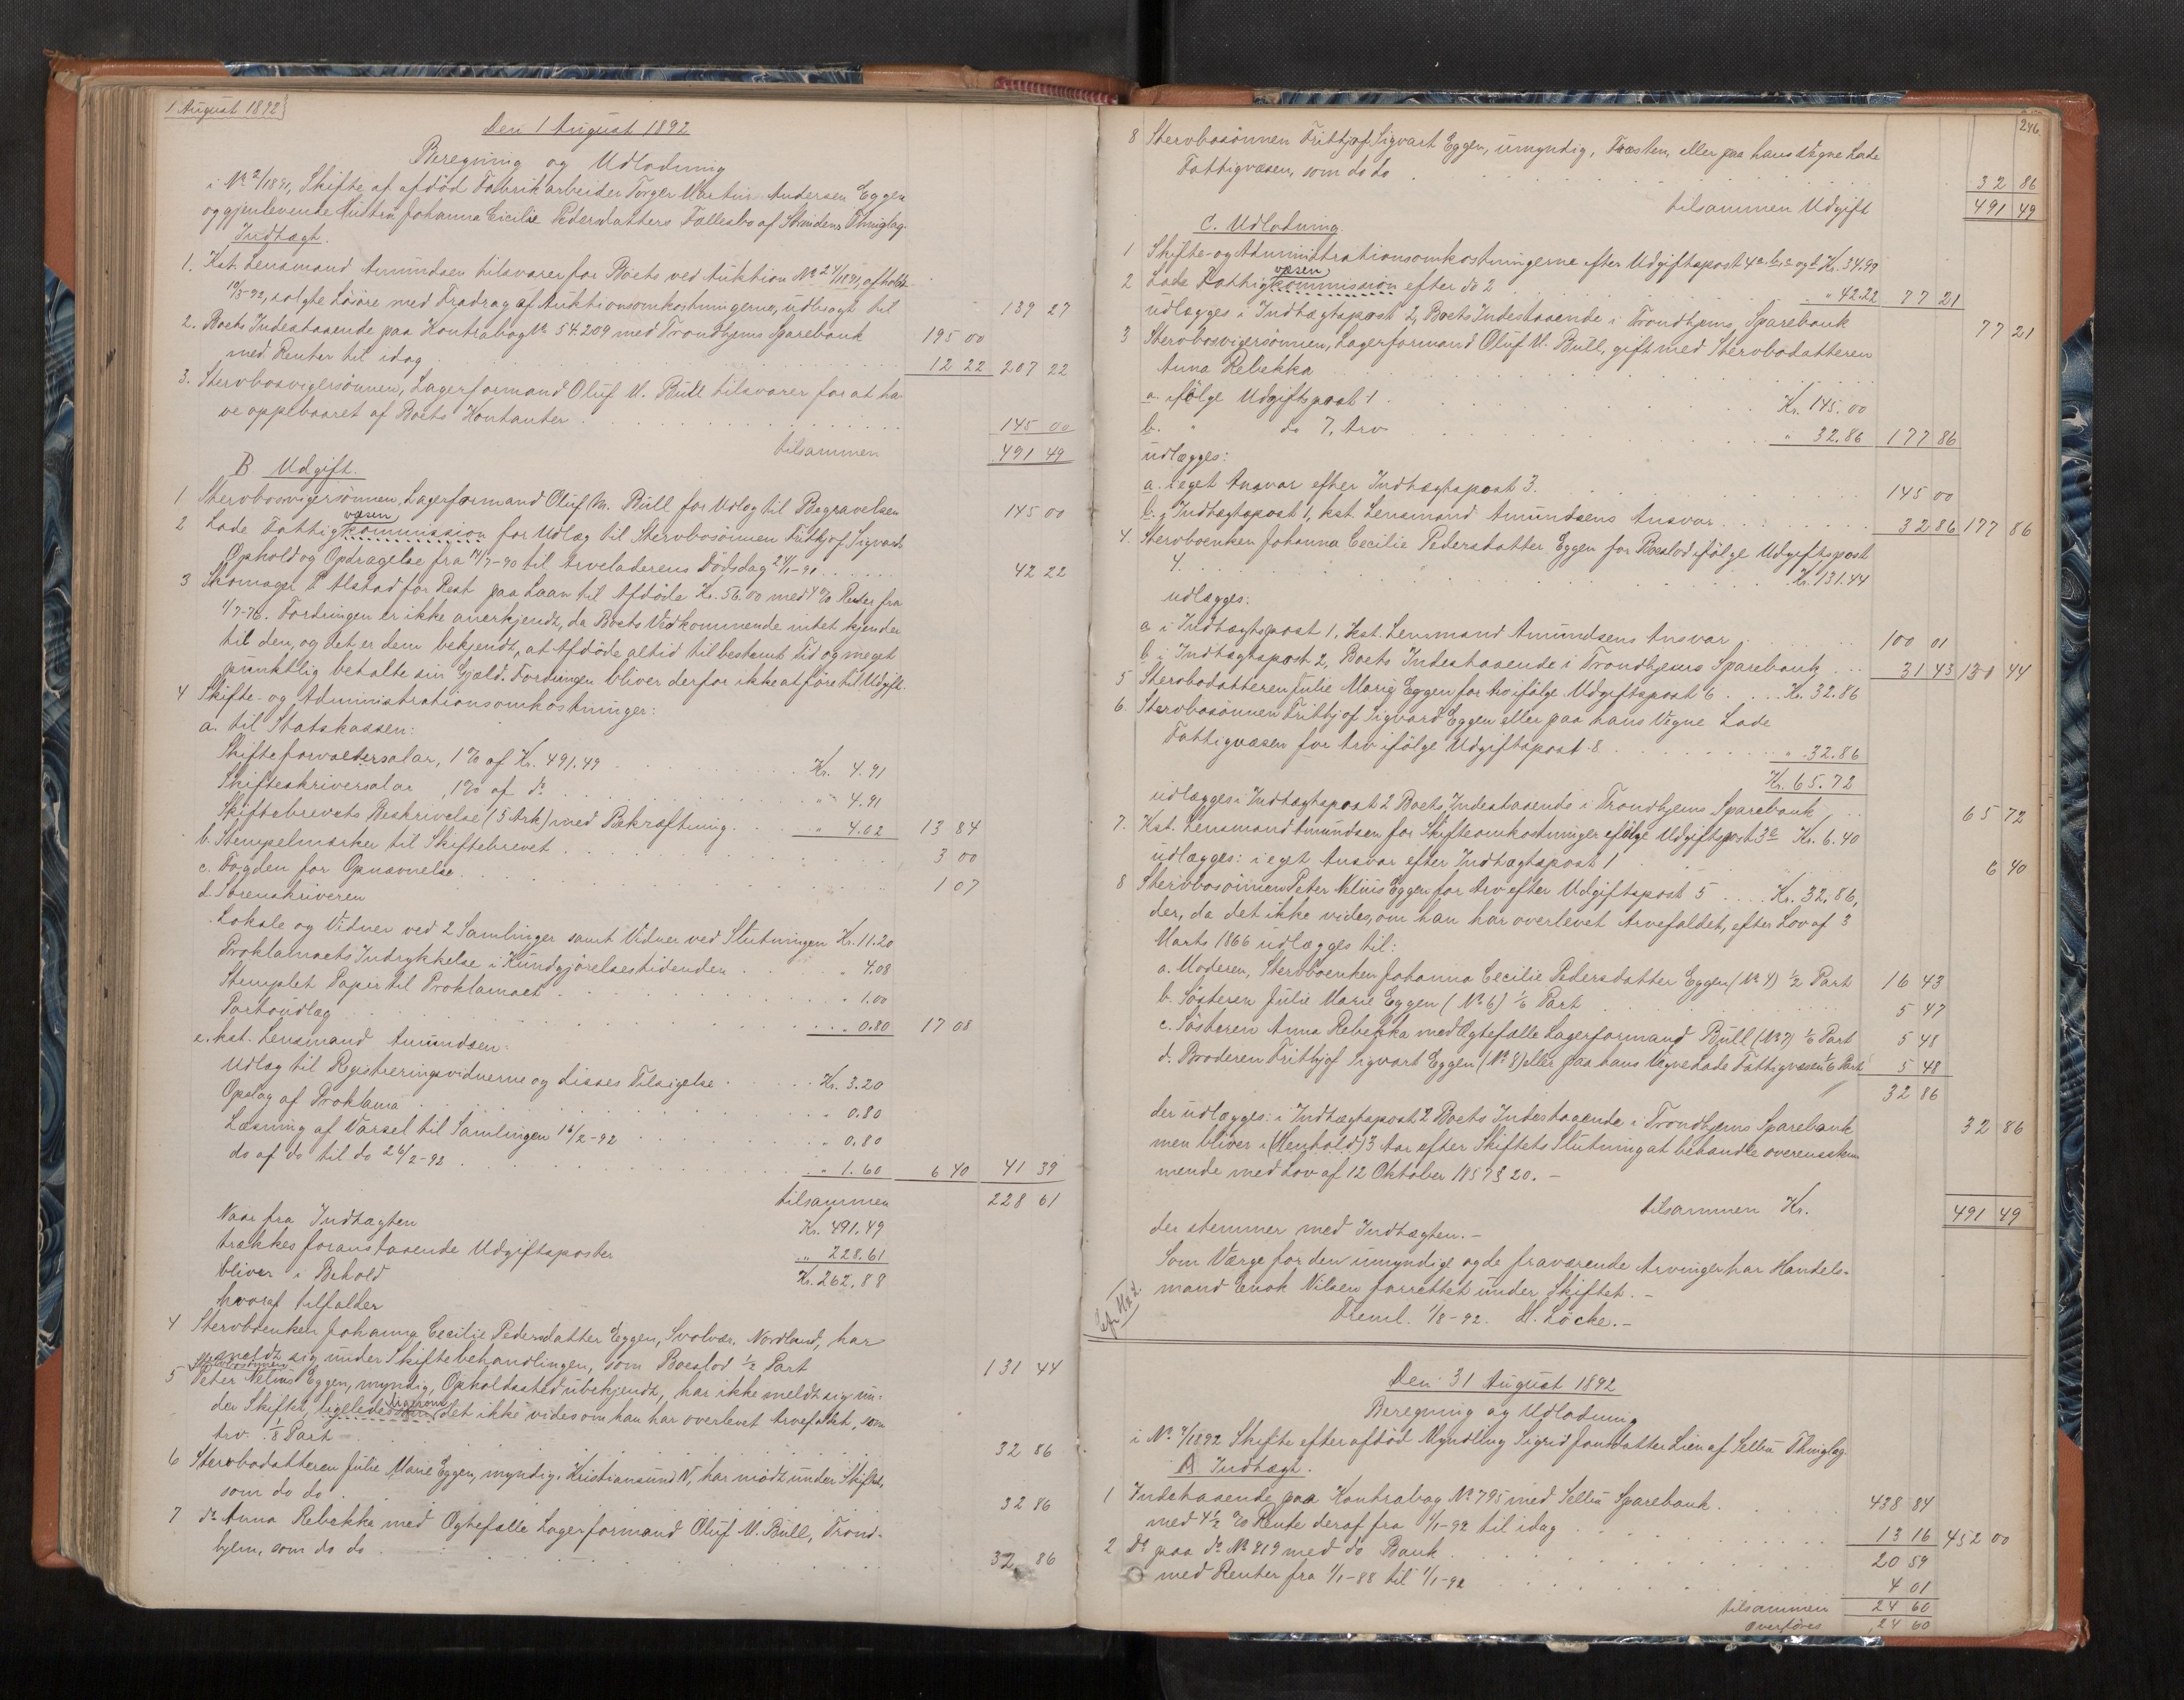 1 August 1892
Den 1 August 1892
Beregning og Udlodning
i No 2/1891, Skifte af afdöd Fabrikarbeider Torger Martin Andersen Eggen
og gjenlevende Hustru Johanna Cicilie Pedersdatters Fællesbo af Strindens Thinglag.
Indtægt.
1. Kst. Lensmand Amundsen tilsvarer for Boets ved Auktion No 24/1891, afholdt
10/3-92, solgte Lösöre med Fradrag af Auktionsomkostningerne, udbragt til 139 27
2. Boets Indestaaende paa Kontrabog No 54209 med Trondhjems Sparebank 195 00
med Renter til idag 12 22 207 22
3. Stervbosvigersönnen, Lagerformand Oluf M. Bull tilsvarer for at ha-
ve oppebaaret af Boets Kontanter 145 00
tilsammen 491 49
B. Udgift.
1 Stervbosvigersönnen, Lagerformand Oluf M. Bull for Udlæg til Begravelsen 145 00
væsen
2 Lade Fattigkommission for Udlæg til Stervbosönnen Fritjof Sigvards
Ophold og Opdragelse fra 14/7-90 til Arveladerens Dödsdag 24/1-91 42 22
3 Skomager P. Alstad for Rest paa Laan til Afdöde Kr. 56.00 med 4% Renter fra
1/7-76. Fordringen er ikke anerkjendt, da Boets Vedkommende intet kjender
til den, og det er dem bekjendt, at Afdöde altid til bestemt Tid og meget
prunktlig betalte sin Gjæld. Fordringen bliver derfor ikke at före til Udgift.
4 Skifte- og Administrationsomkostninger:
a. til Statskassen:
Skifteforvaltersalar, 1% af Kr. 491.49 Kr. 4.91
Skifteskriversalar, 1% af do " 4.91
Skiftebrevets Beskrivelse (5 Ark) med Bekræftning " 4.02 13 84
b. Stempelmærker til Skiftebrevet 3 00
c. Fogden for Opnævnelse 1 07
d. Sorenskriveren
Lokale og Vidner ved 2 Samlinger samt Vidner ved Slutningen Kr. 11.20
Proklamaets Indrykkelse i Kundgjörelsestidenden " 4.08
Stemplet Papir til Proklamaet " 1.00
Portoudlæg " 0.80 17 08
e. kst. Lensmand Amundsen:
Udlæg til Registreringsvidnerne og disses Tilsigelse Kr. 3.20
Opslag af Proklama " 0.80
Læsning af Varsel til Samlingen 16/2-92 " 0.80
do af do til do 26/2-92 " 1.60 6 40 41 39
tilsammen 228 61
Naar fra Indtægten Kr. 491.49
trækkes foranstaaende Udgiftsposter " 228.61
bliver i Behold Kr. 262.88
hvoraf tilfalder
4 Stervboenken Johanna Cecilie Pedersdatter Eggen, Svolvær, Nordland, har
meldt sig under Skiftebehandlingen, som Boeslod 1/2 Part 131 44
Stervbosönnen
5 Peter Nelius Eggen, myndig, Opholdssted ubekjendt, har ikke meldt sig un-
ligesom
der Skiftet, ligeledes det ikke vides om han har overlevet Arvefaldet, som
Arv 1/8 Part 32 86
6 Stervbodatteren Julie Marie Eggen, myndig, Kristiansund N, har mödt under Skiftet,
som do do 32 86
7 do Anna Rebekka med Ægtefælle Lagerformand Oluf M. Bull, Trond-
hjem, som do do 32 86
246
8 Stervbosönnen Fritjof Sigvart Eggen, umyndig, Frosten, eller paa hans Vegne Lade
Fattigvæsen, som do do 32 86
tilsammen Udgift 491 49
C. Udlodning.
1 Skifte- og Administrationsomkostningerne efter Udgiftspost 4 a, b, c og d Kr. 34.99
væsen
2 Lade Fattigkommission efter do 2 " 42.22 77 21
udlægges i Indtægtspost 2, Boets Indestaaende i Trondhjems Sparebank 77 21
3 Stervbosvigersönnen, Lagerformand Oluf M. Bull, gift med Stervbodatteren
Anna Rebekka
a. ifölge Udgiftspost 1 Kr. 145.00
b. " do 7, Arv " 32.86 177 86
udlægges:
a. i eget Ansvar efter Indtægtspost 3. 145 00
b. i Indtægtspost 1, kst. Lensmand Amundsens Ansvar 32 86 177 86
4. Stervboenken Johanna Cecilie Pedersdatter Eggen for Boeslod ifölge Udgiftspost
4. Kr. 131.44
udlægges:
a i Indtægtspost 1, kst. Lensmand Amundsens Ansvar 100 01
b i Indtægtspost 2, Boets Indestaaende i Trondhjems Sparebank 31 43 131 44
5 Stervbodatteren Julie Marie Eggen for Arv ifölge Udgiftspost 6 Kr. 32.86
6. Stervbosönnen Fritjof Sigvard Eggen eller paa hans Vegne Lade
Fattigvæsen for Arv ifölge Udgiftspost 8 " 32.86
Kr. 65.72
udlægges i Indtægtspost 2 Boets Indestaaende i Trondhjems Sparebank 65 72
7. Kst. Lensmand Amundsen for Skifteomkostninger ifölge Udgiftspost 3e Kr. 6.40
udlægges: i eget Ansvar efter Indtægtspost 1 6 40
8 Stervbosönnen Peter Nelius Eggen for Arv efter Udgiftspost 5 Kr. 32.86,
der, da det ikke vides, om han har overlevet Arvefaldet, efter Lov af 3
Marts 1866 udlægges til:
a. Moderen, Stervboenken Johanna Cecilie Pedersdatter Eggen (No 4) 1/2 Part 16 43
b. Sösteren Julie Marie Eggen (No 6) 1/6 Part 5 47
c. Sösteren Anna Rebekka med Ægtefælle Lagerformand Bull (No 7) 1/6 Part 5 48
d. Broderen Fritjof Sigvart Eggen (No 8) eller paa hans Vegne Lade Fattigvæsen 1/6 Part 5 48
32 86
der udlægges: i Indtægtspost 2 Boets Indestaaende i Trondhjems Sparebank 32 86
men bliver i (Henhold) 3 Aar efter Skiftets Slutning at behandle overensstem-
mende med Lov af 12 Oktober 1857 § 20. —
tilsammen Kr. 491 49
der stemmer med Indtægten. —
Som Værge for den umyndige og de fraværende Arvinger har Handels-
mand Enok Nilsen forrettet under Skiftet. —
Freml. 1/8-92. H. Löcke. —
Den 31 August 1892
Beregning og Udlodning
i No 7/1892 Skifte efter afdöd Myndling Sigrid Jonsdatter Lien af Selbu Thinglag
A Indtægt.
1 Indestaaende paa Kontrabog No 795 med Selbu Sparebank 438 84
med 4 1/2 % Rente deraf fra 1/1-92 til idag 13 16 452 00
2 do paa do No 819 med do Bank 20 59
med Renter fra 1/1-88 til 1/1-92 4 01
tilsammen 24 60
overföres 24 60